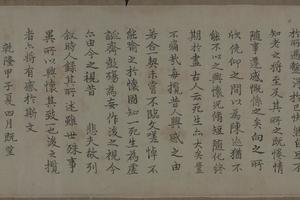 於所遇暫得於己快然自足不
知老之將至及其所之既惓情
隨事遷感慨係之矣向之所
欣俛仰之間以為陳迹猶不
能不以之興懷況脩短隨化終
期於盡古人云死生亦大矣豈
不痛哉每攬昔人興感之由
若合一契未嘗不臨文嗟悼不
能喻之於懷固知一死生為虛
誕齊彭殤為妄作後之視今
亦由今之視昔 悲夫故列
敘時人錄其所述雖世殊事
異所以興懷其致一也後之攬
者亦將有感於斯文
乾隆甲子夏四月既望